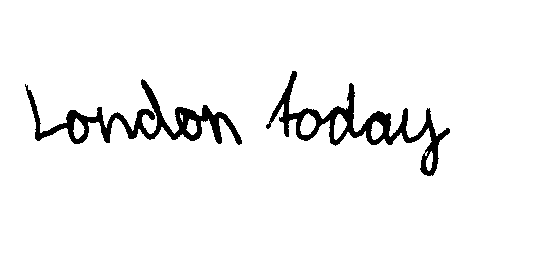 London today